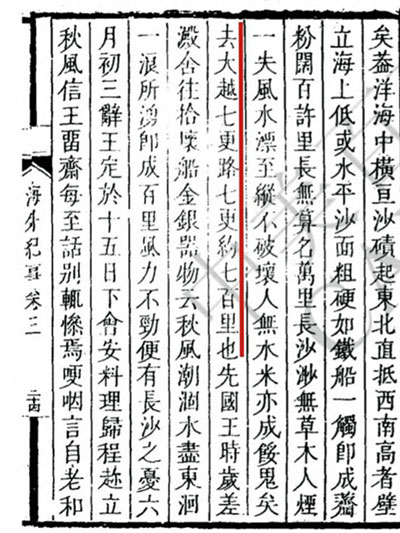 矣蓋洋海中橫亘沙磧起東北直抵西南高者壁
立海上低或水平沙面粗硬如鐵船一觸即成齏
粉闊百許里長無算名萬里長沙渺無草木人煙
一失風水漂至縱不破壞人無水米亦成餒鬼矣
去大越七更路七更約七百里也先國王時歲差
澱舍往拾壞船金銀器物云秋風潮涸水盡東洄
一浪所湧即成百里風力不勁便有長沙之憂六
月初三辭王定於十五日下會安料理歸程趂立
秋風信王畱齋每至話別輒慘焉哽咽言自老和
海外紀事卷三
二十四